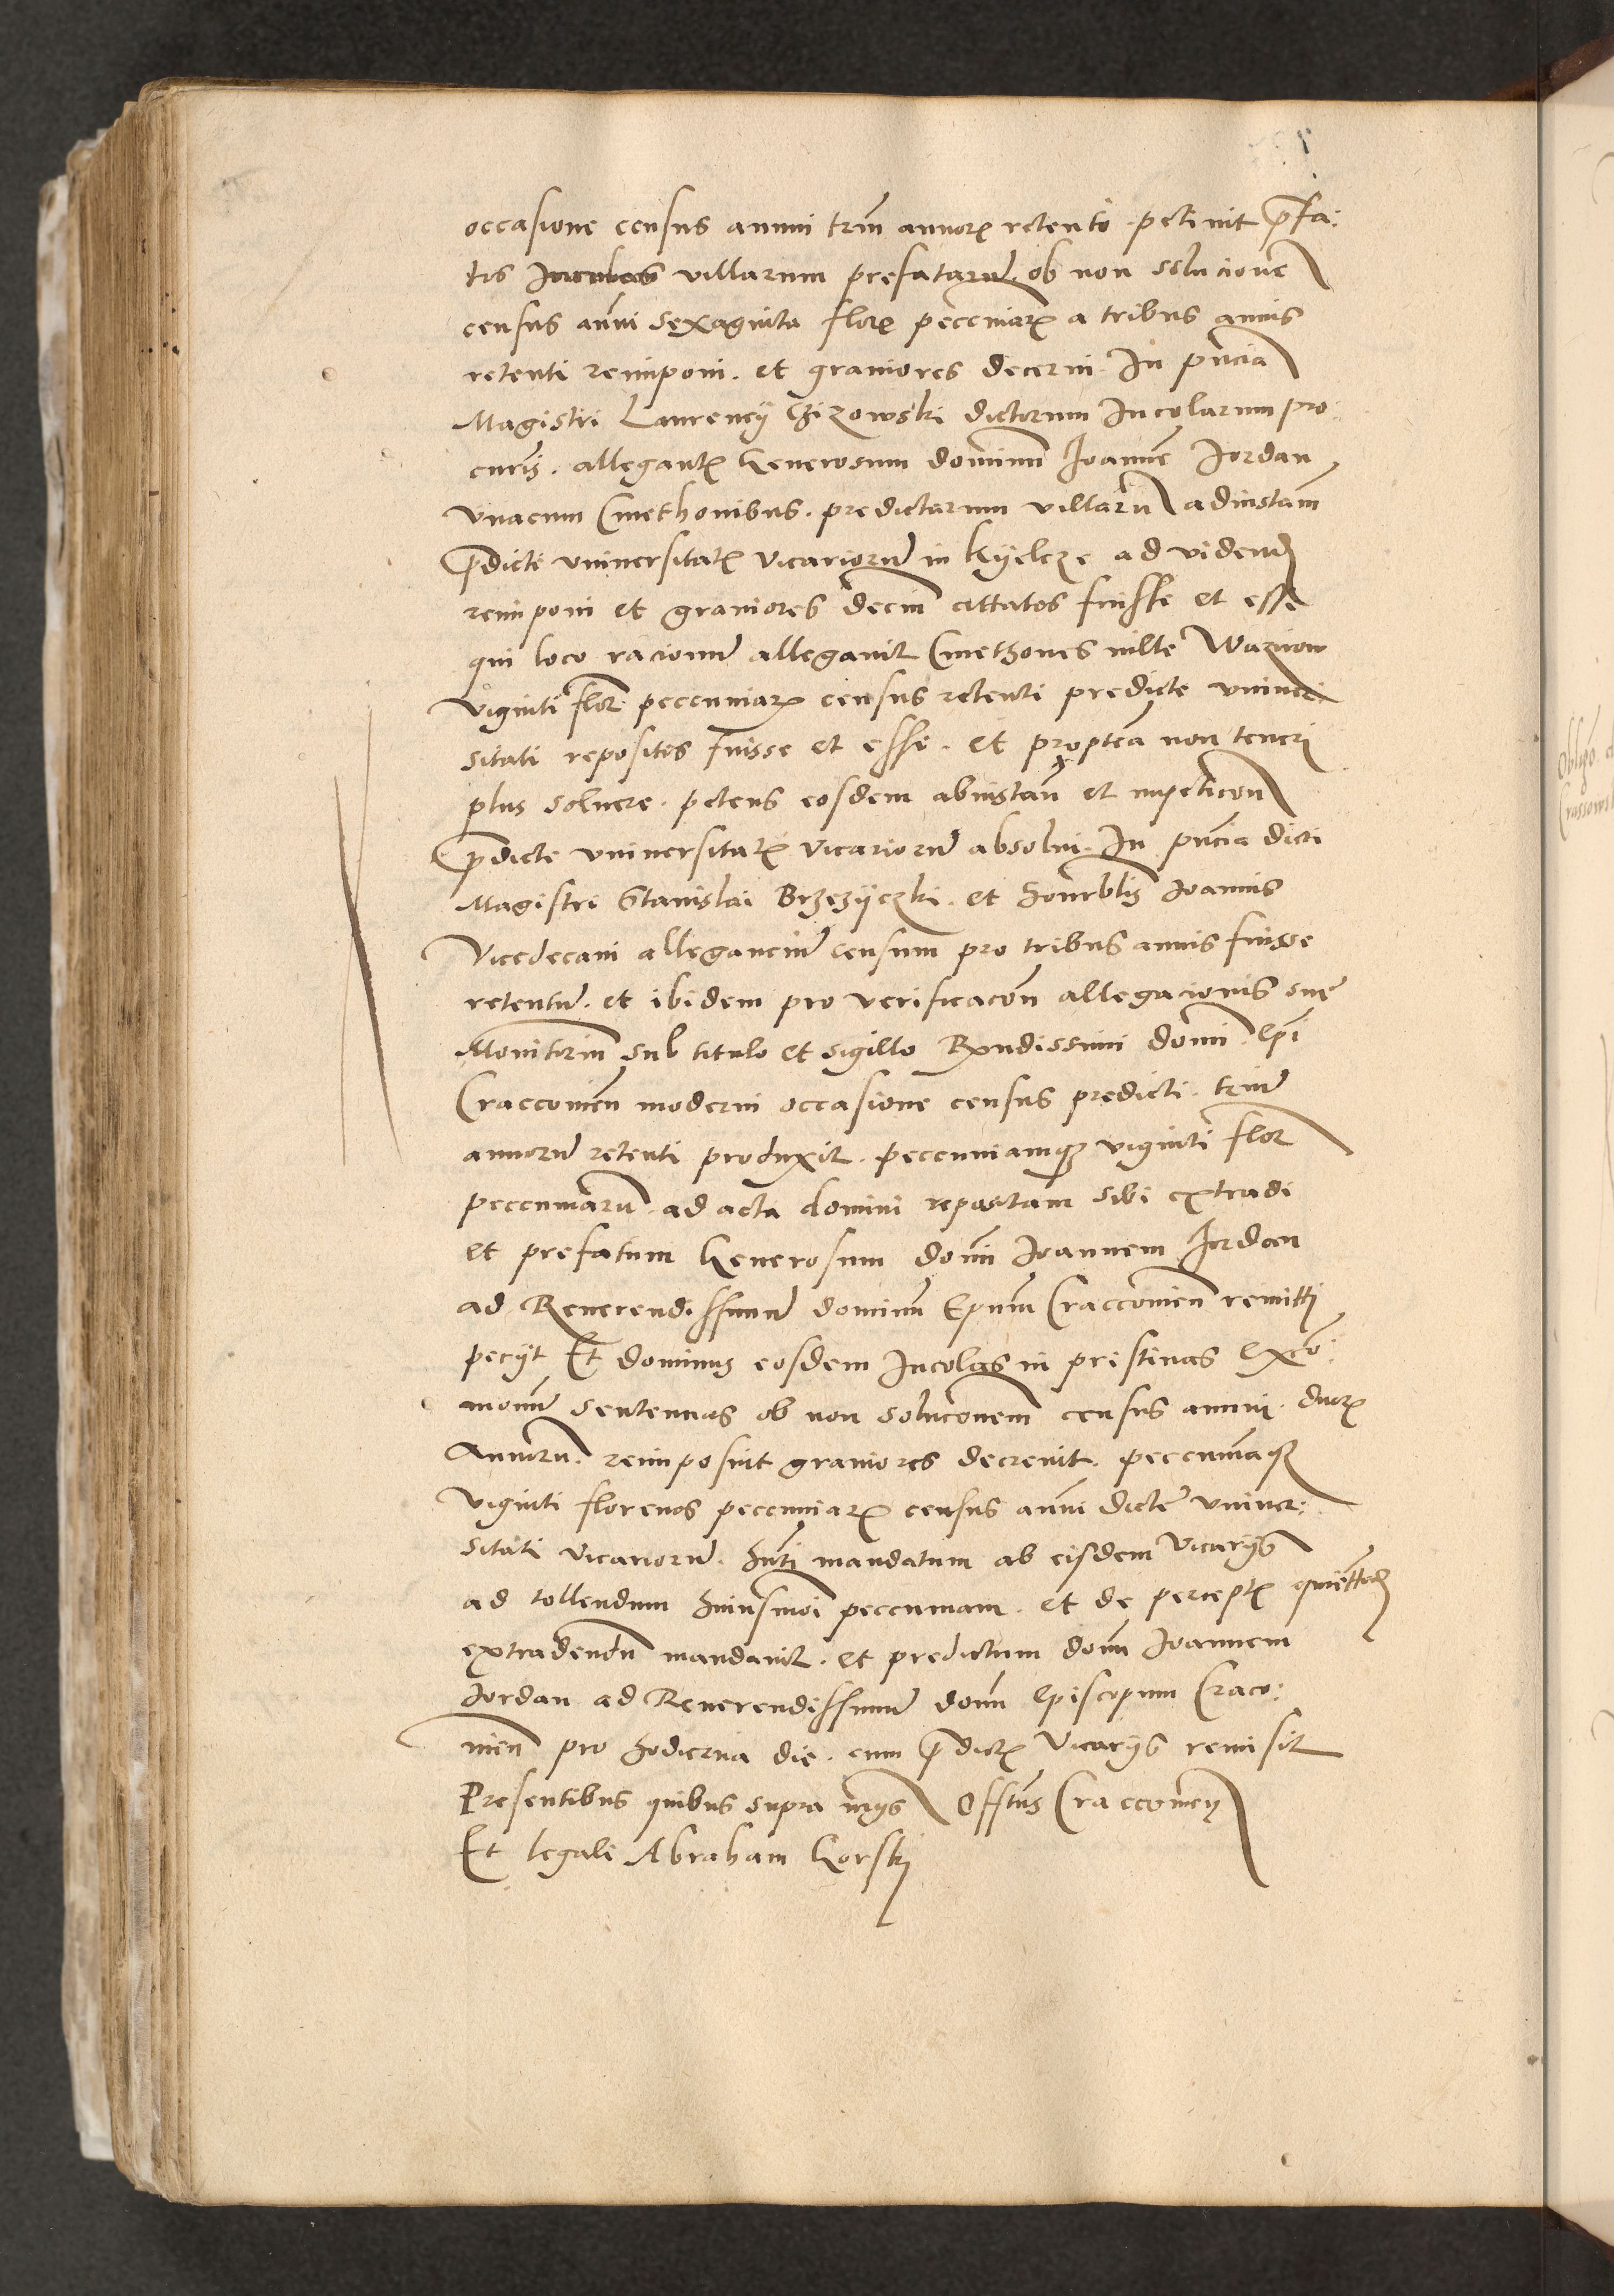 occasione census annui trium annorum retento petivit prefa:
tos Incolas villarum prefatarum ob non solucione
census annui sexaginta flor pecceniarum a tribus annis
retenti reimponi. et graviores decerni. In pncia
Magistri Laurency Czizowski dictorum Incolarum pro
curris. allegantis Generosum dominum Joannem Jordan
unacum Cmethonibus. predictarum villarum ad instam
predicte universitatis vicariorum in kyelcze ad videndum
reimponi et graviores decerni cittatos fuisse et esse
qui loco racionum allegavit Cmethones ville
viginti flor peccuniarum census retenti predicte univer
sitati repositos fuisse et esse. et propterea non teneri
plus solvere. petens eosdem ab instan et impeticion
predicte universitatis vicariorum absolvi. In pncia dicti
Magistri Stanislai Brzezyczki. et honorabilis Joannis
Vicedecani allegancium censum pro tribus annis fuisse
retentum. et ibidem pro verificacion allegacionis sue
Monitorium sub titulo et sigillo Rvndissimi domini Epi
Craccovien moderni occasione census predicti. trium
annorum retenti produxit. peccuniamque viginti flor
peccuniarum ad acta domini repositam sibi extradi
et prefatum Generosum domi Joannem Jordan
ad Reverendissimum dominum Epum Craccovien remitti
pecyt Et dominus eosdem Incolas in pristinas Exco:
monum sentencias ob non solucionem census annui. duorum
Annorum. reimposuit graviores decrevit. peccuniamque
viginti florenos peccuniarum census annui dicte univer:
sitati vicariorum. hnti mandatum ab eisdem Vicarys
ad tollendum huiusmoi peccuniam. et de perceptis quiettandum
extradendum mandavit. et predictum domi Joannem
Jordan ad Reverendissimum domi Episcopum Craco:
vien pro hodierna die. cum predictis Vicarys remisit
Presentibus quibus supra nrys Offtus Craccovien
Et legali Abraham Gorski